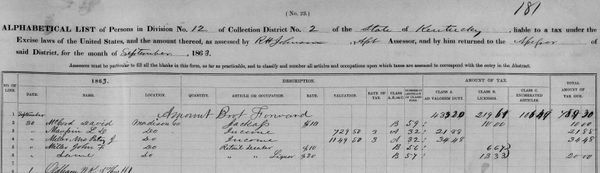 (No. 23.)
181
ALPHABETICAL LIST of Persons in Division No. 12 of Collection District No. 2 of the State of Kentucky, liable to a tax under the
Excise laws of the United States, and the amount thereof, as assessed by R H Johnson Asst Assessor, and by him returned to the Assessor of
said District, for the month of September, 1863.
Assessors must be particular to fill all the blanks in this form, as far as practicable, and to classify and number all articles and occupations upon which taxes are assessed to correspond with the entry in the Abstract.
NO. OF LINE. 1863. DESCRIPTION. AMOUNT OF TAX.
DATE. NAME. LOCATION. QUANTITY. ARTICLE OR OCCUPATION. RATE. VALUATION. RATE OF TAX. CLASS A. B. or C. CLASS A. AD VALOREM DUTY. CLASS B. LICENSES. CLASS C. ENUMERATED ARTICLES. TOTAL AMOUNT OF TAX DUE.
1 September Amount Brot Forward
2 30 David Madison Co Jackass $10 B 59 10.00 10.00
3 " Maupin L D Do Income 729 50 3 A 32 21.88 21.88
4 " Miller Mrs J Do Income 1149 50 3 A 32 34.48 34.48
5 " Miller John F Do Retail Dealer $10 B 56 6 67
6 " Same Do " " Liquor $20 B 57 13 33 20.00